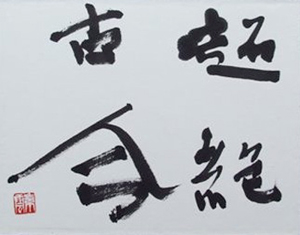 超絶
古今